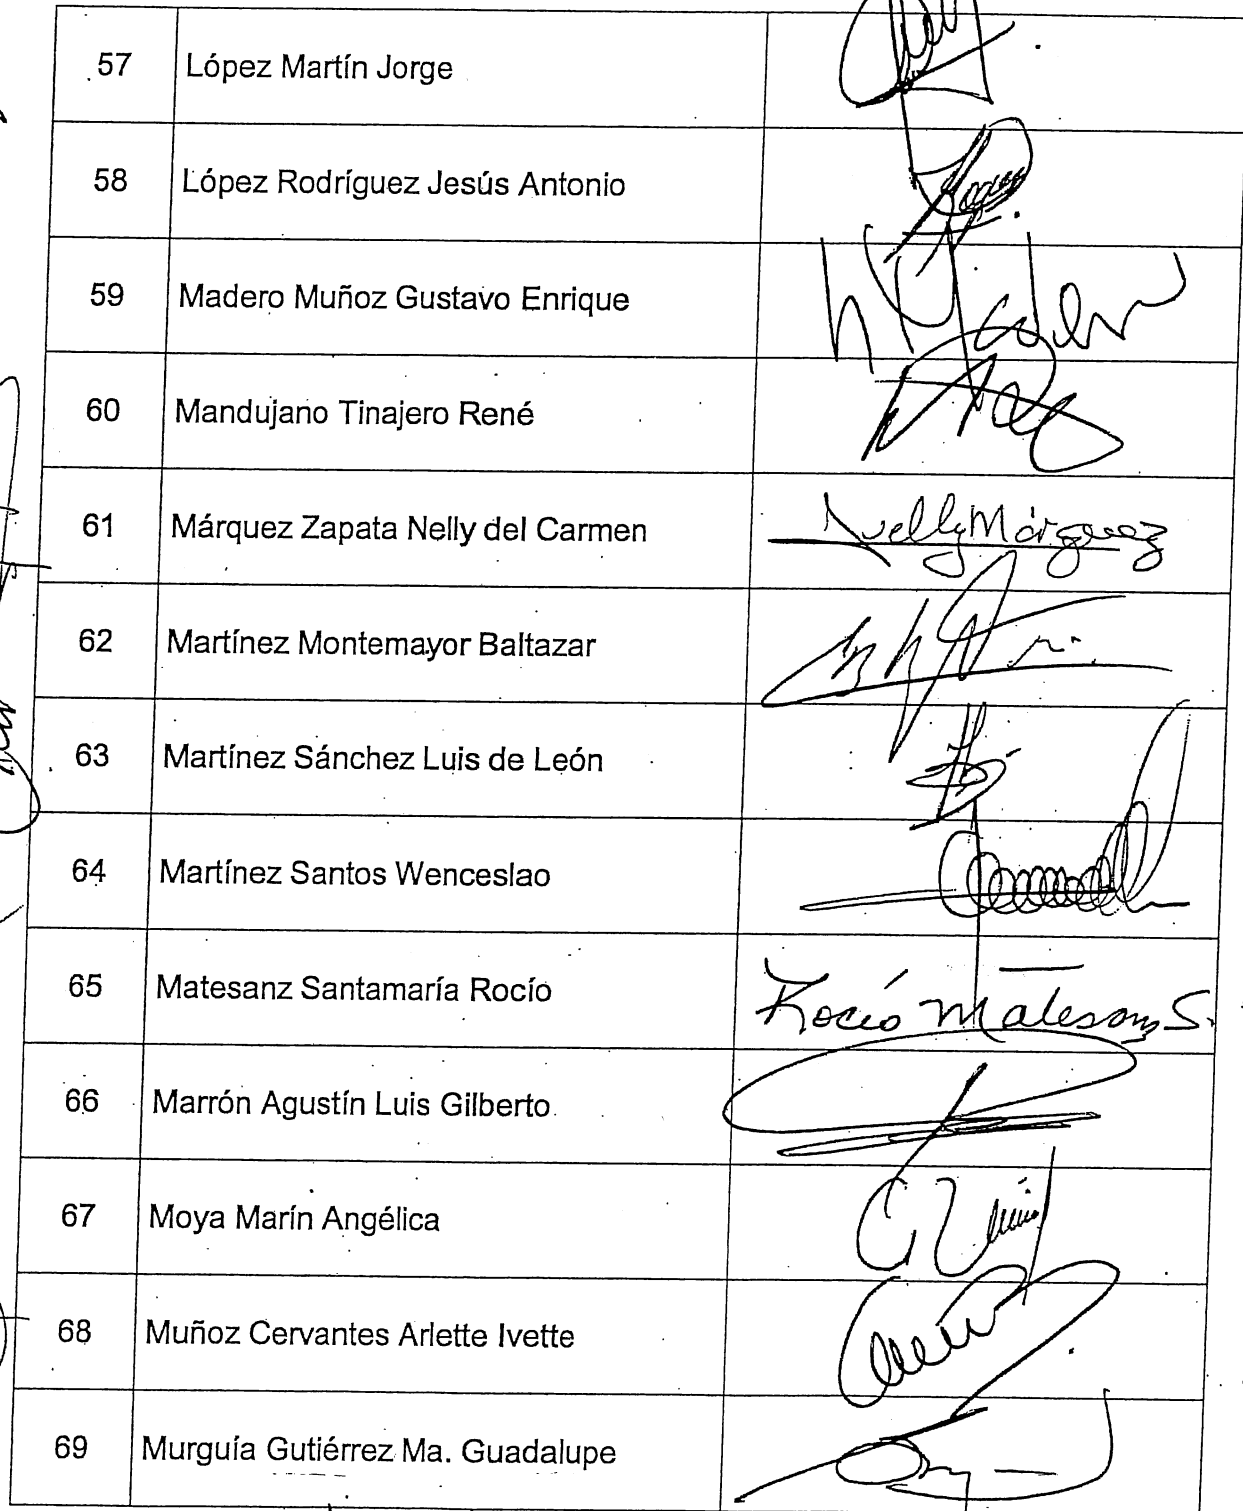 57 López Martín Jorge
58 López Rodríguez Jesús Antonio
59 Madero Muñoz Gustavo Enrique
60 Mandujano Tinajero René
61 Márquez Zapata Nelly del Carmen Nelly Márquez
62 Martínez Montemayor Baltazar
63 Martínez Sánchez Luis de León
64 Martínez Santos Wenceslao
65 Matesanz Santamaría Rocío Rocío Matesanz S.
66 Marrón Agustín Luis Gilberto
67 Moya Marín Angélica
68 Muñoz Cervantes Arlette Ivette
69 Murguía Gutiérrez Ma. Guadalupe